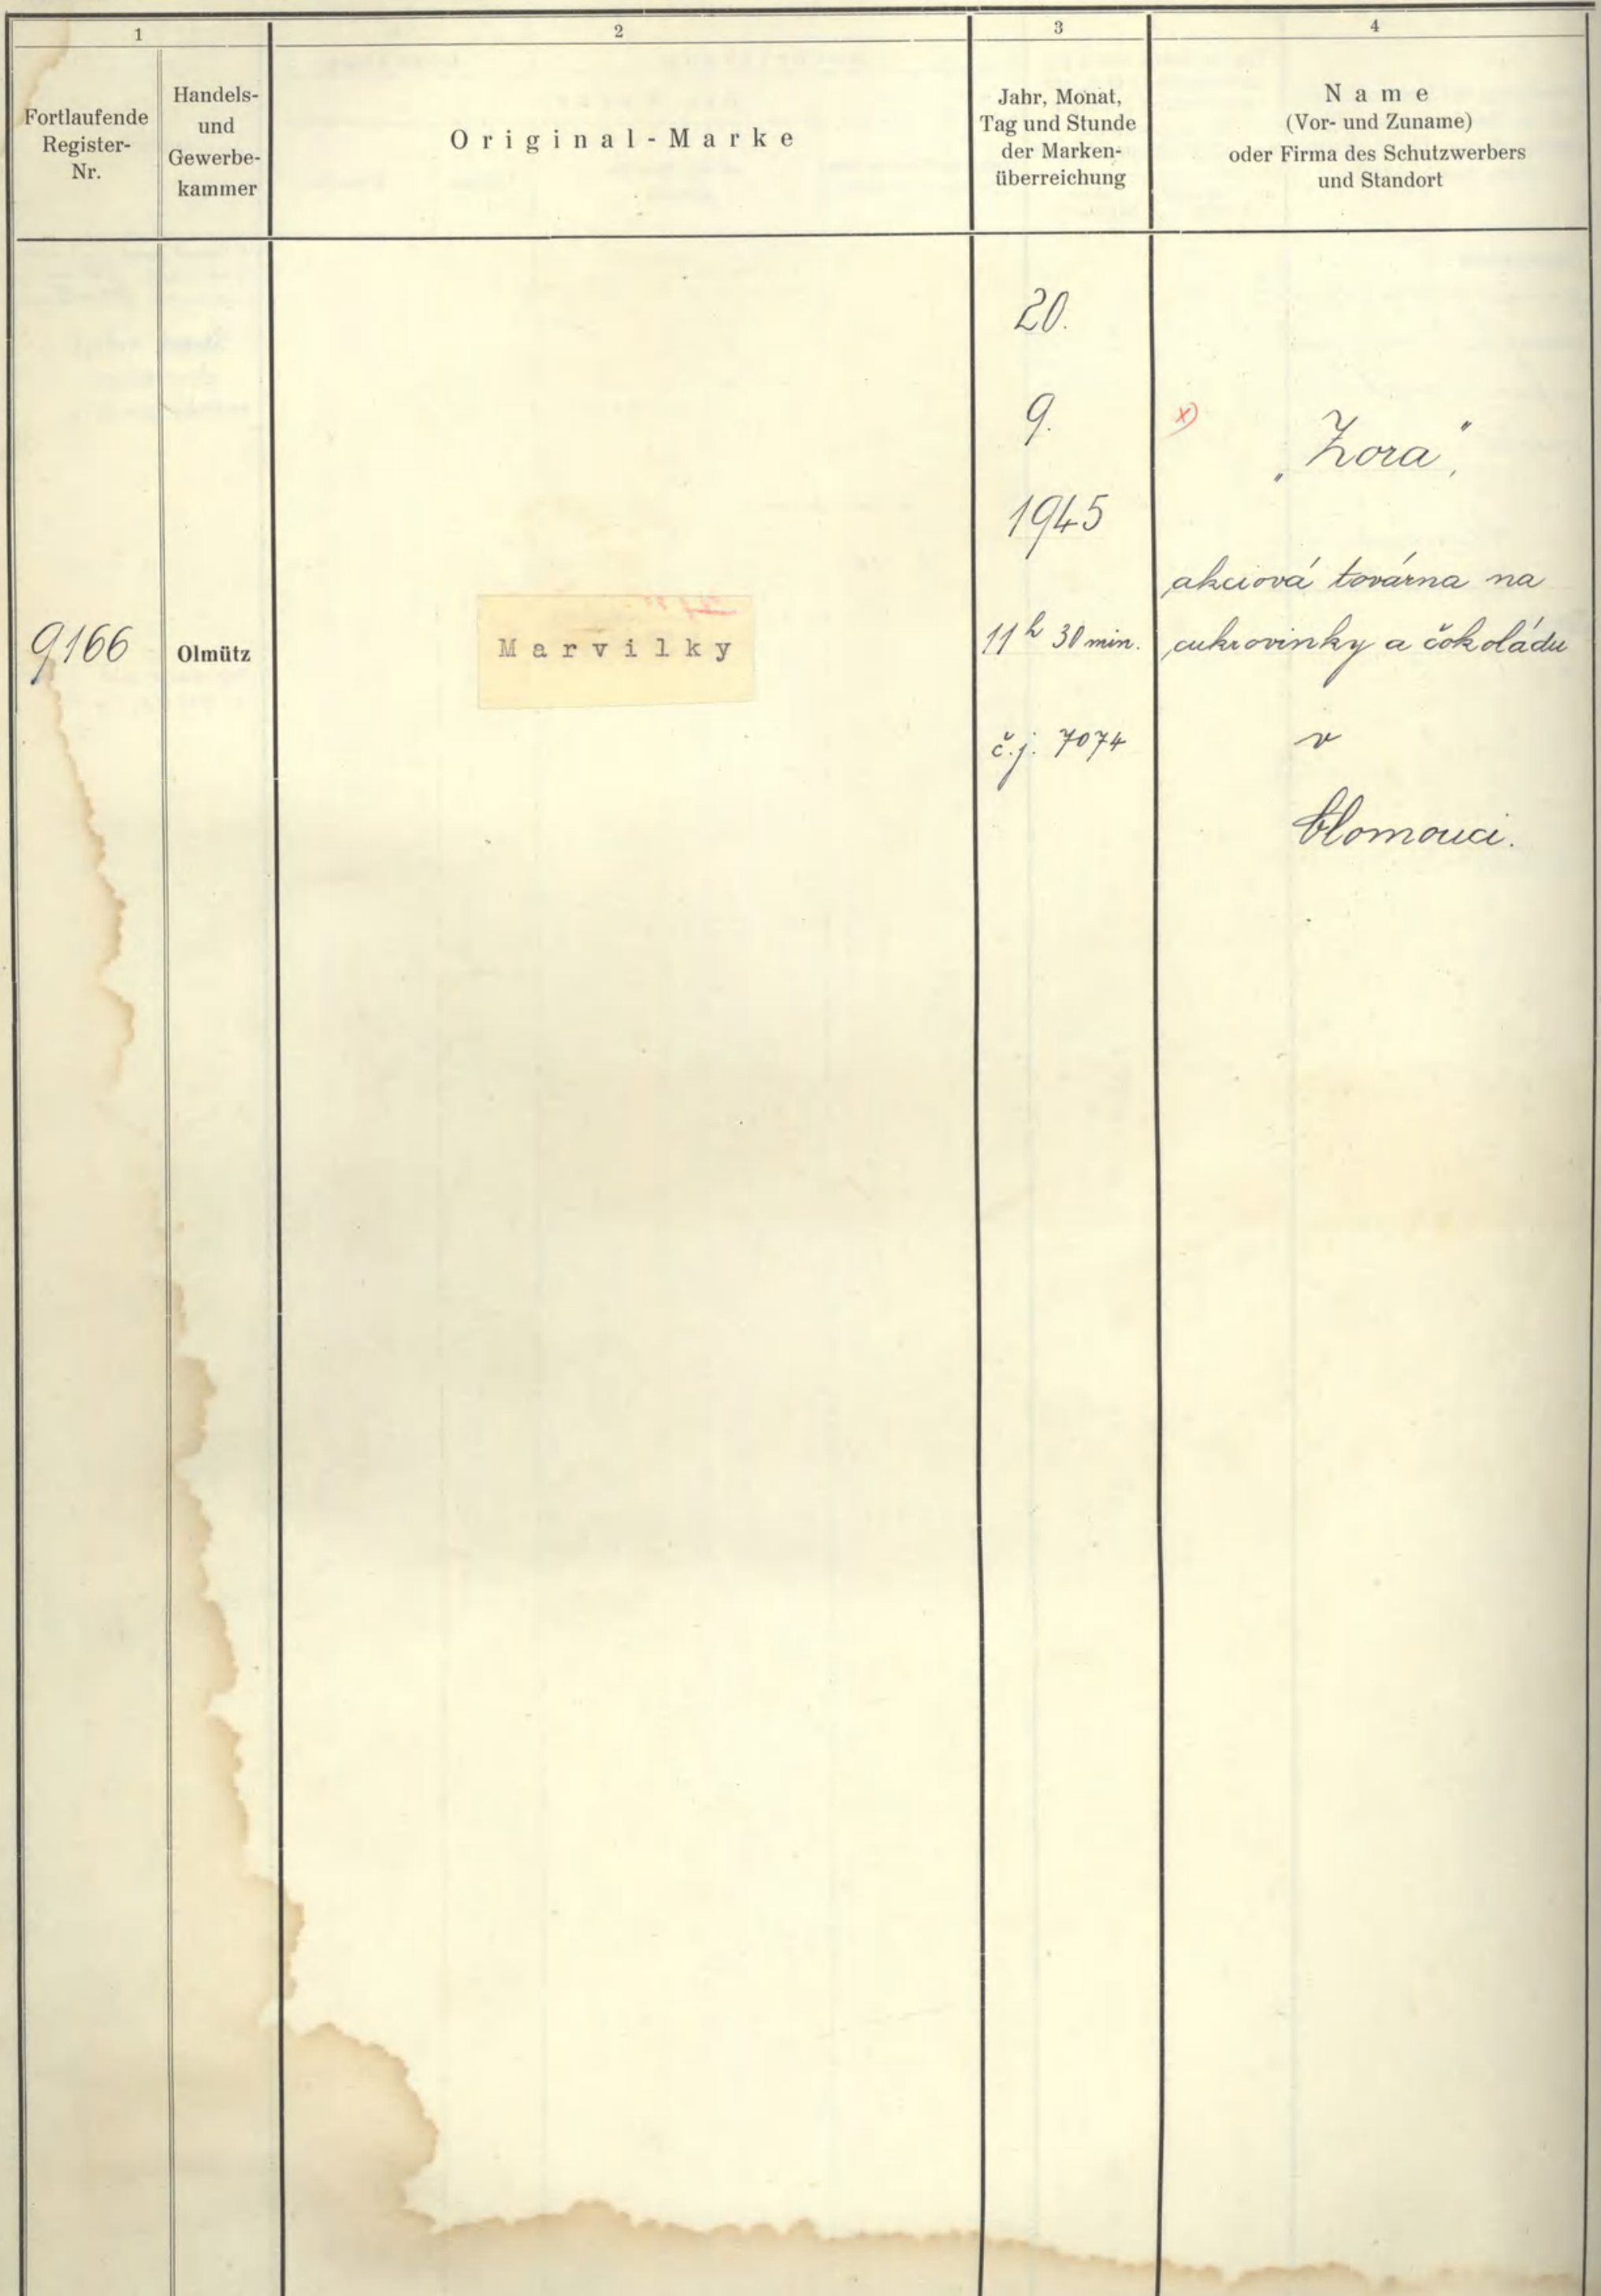 1
2
3
4
Fortlaufende
Register-
Nr.
Handels-
und
Gewerbe-
kammer
Original-Marke
Jahr, Monat,
Tag und Stunde
der Marken-
überreichung
Name
(Vor- und Zuname)
oder Firma des Schutzwerbers
und Standort
9166
Olmütz
Marvilky
20.
9.
1945
11 h 30 min.
č.j. 7074
x)
„Zora",
akciová továrna na
cukrovinky a čokoládu
v
Olomouci.